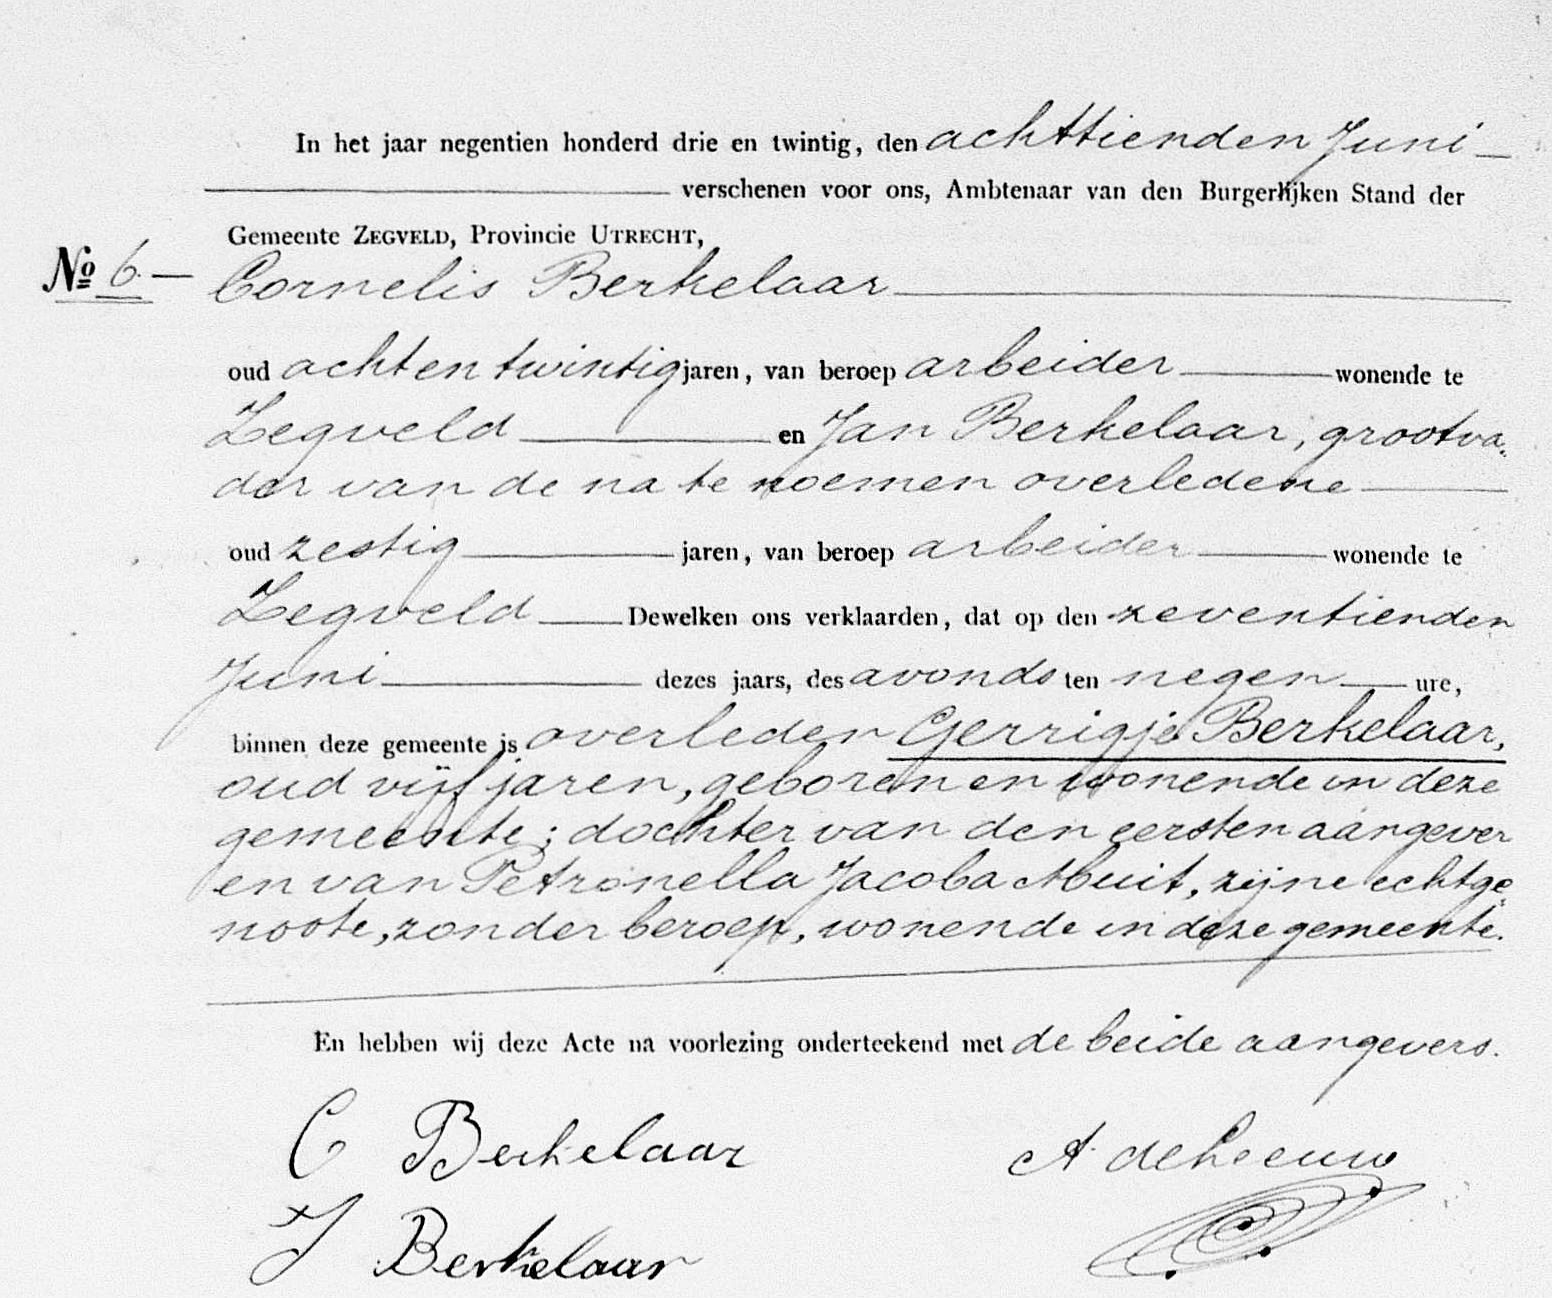 In het jaar negentien honderd drie en twintig, den achttienden Juni
verschenen voor ons, Ambtenaar van den Burgerlijken Stand der
Gemeente ZEGVELD, Provincie UTRECHT,
No 6. Cornelis Berkelaar
oud acht en twintig jaren, van beroep arbeider wonende te
Zegveld en Jan Berkelaar, grootva„
der van de na te noemen overledene
oud zestig jaren, van beroep arbeider wonende te
Zegveld Dewelken ons verklaarden, dat op den zeventienden
Juni dezes jaars, des avonds ten negen ure,
binnen deze gemeente is overleden Gerrigje Berkelaar,
oud vijf jaren, geboren en wonende in deze
gemeente; dochter van den eersten aangever
en van Petronella Jacoba Muit, zijne echtge„
noote, zonder beroep, wonende in deze gemeente.
En hebben wij deze Acte na voorlezing onderteekend met de beide aangevers.
C Berkelaar A de Leeuw
J Berkelaar